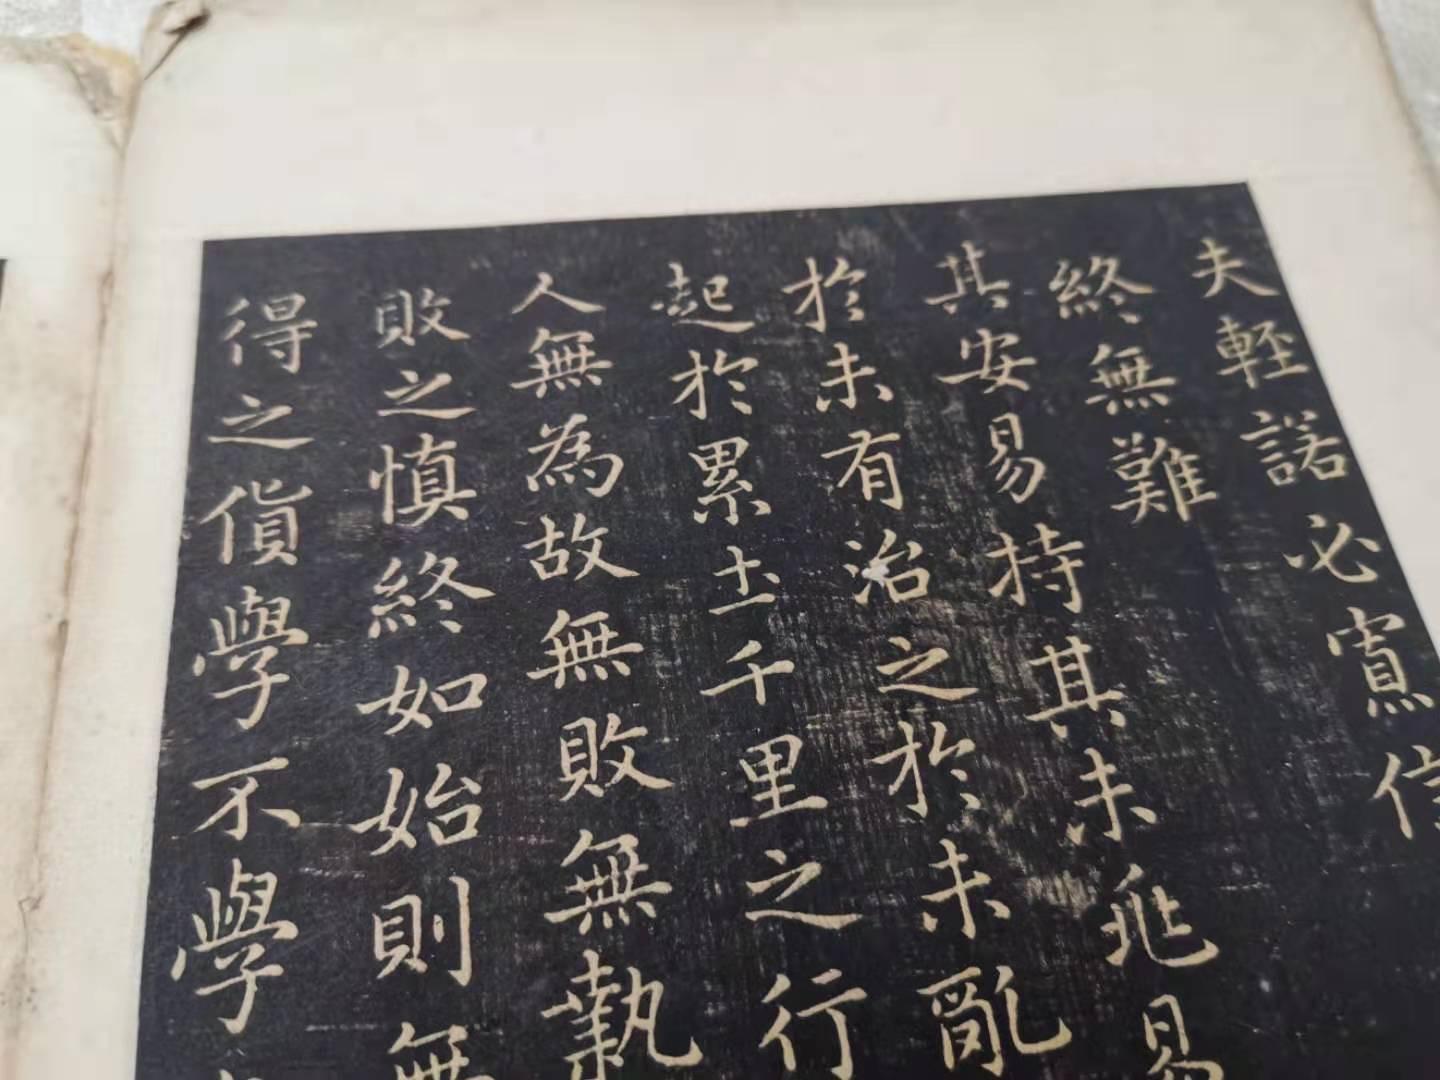 夫輕諾必寡信
終無難
其安易持其未兆易
於未有治之於未亂
起於累土千里之行
人無為故無敗無執
敗之慎終如始則無
得之貨學不學